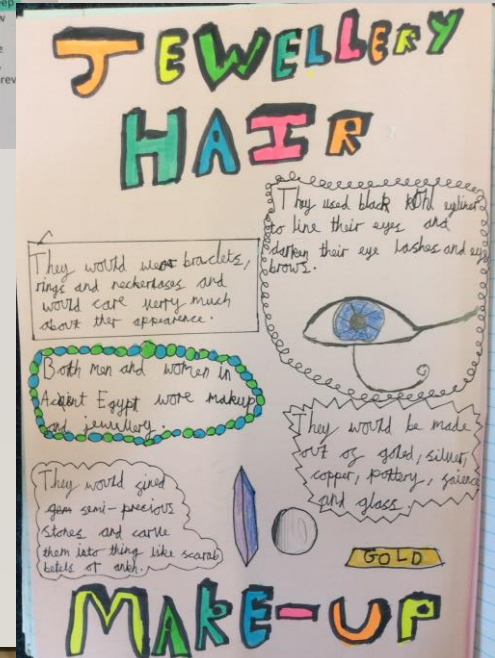 JEWELLERY
HAIR
They used black kohl eyeliner
to line their eyes and
darken their eye lashes and eye
brows.
They would wear braclets,
rings and neckertases and
would care verry much
about ther appearence.
Both men and women in
Acient Egypt wore makeup
and jewullery.
They would be made
out of gold, silver,
copper, pottery, faience
and glass.
They would fined
gem semi-precious
stones and carve
them into thing like scarab
betels or ankh.
GOLD
MAKE-UP